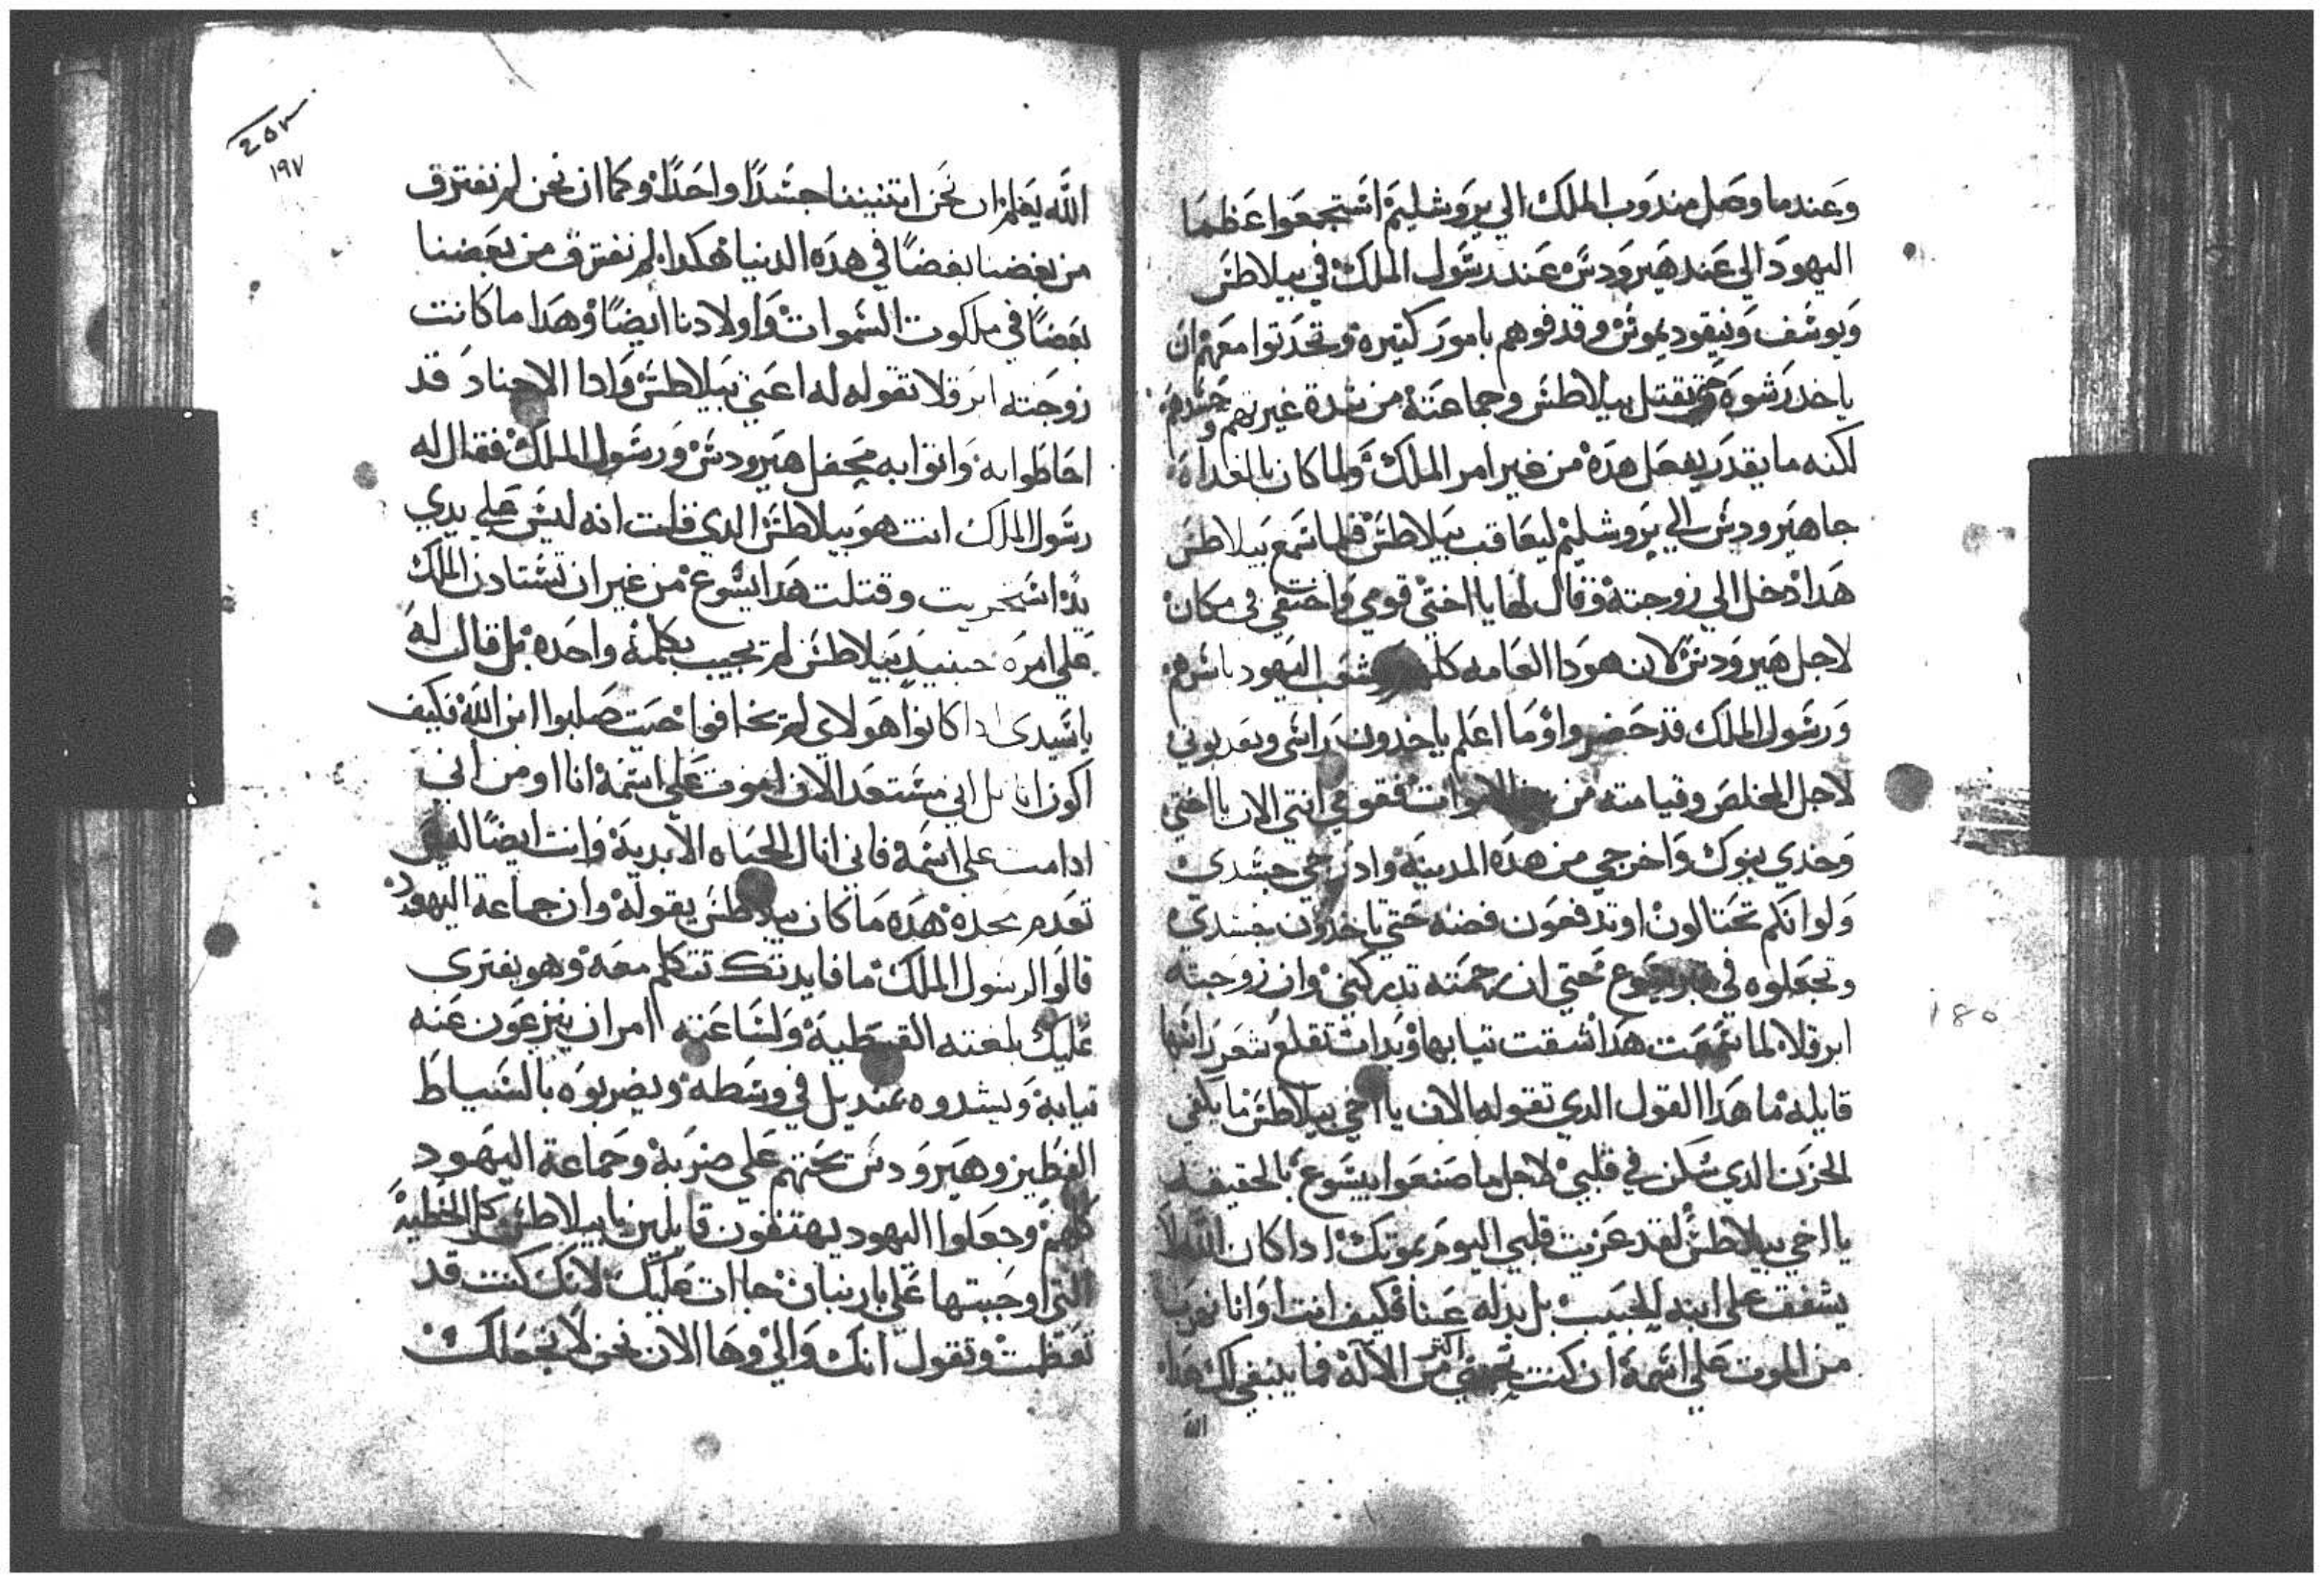 وعندما وصل مندوب الملك الي يروشليم استجمعوا عظما
اليهود الي عند هيرودس عند رسول الملك في بيلاطس
ويوسف ونيقوديموس وقدفوهم بامور كتيره وتحدتوا معهم ان
ياخد رشوه حتي يقتل بيلاطس وجماعته من شدة غيرتهم وحسدهم
لكنه ما يقدر يفعل هده من غير امر الملك ولما كان بالغداه
جا هيرودس الي يروشليم ليعاقب بيلاطس فلما سمع بيلاطس
هدا دخل الي زوجته وقال لها يا اختي قومي واختفي في مكان
لاجل هيرودس لان هودا العامه كلهم وشعب اليهود باسرهم
ورسول الملك قد حضروا وما اعلم ياخدون راسي ويعدبوني
لاجل المخلص وقيامته من الاموات فقومي انتي الان يا اختي
وخدي بنوك واخرجي من هده المدينه وادرجي جسدي
ولو انكم تحتالون او تدفعون فضه حتي ياخدون جسدي
وتجعلوه في قبر يسوع حتي ان رحمته تدركني وان زوجته
ابرقلاه لما سمعت هدا شقت تيابها وبدات تقلع شعر راسها
قايله ما هدا القول الدي تقوله الان يا اخي بيلاطس ما يكفي
الحزن الدي سكن في قلبي لاجل ما صنعوا بيسوع بالحقيقه
يا اخي بيلاطس لقد عزيت قلبي اليوم بموتك ادا كان الله لم
يشفق علي ابنه الحبيب بل بدله عنا فكيف انت او انا نهربنا
من الموت علي اسمه ان كنت تحبني اكتر من الاله فما ينبغي لك هدا
الله
٢٥٣
١٩٧
الله يعلم ان نحن اتنيننا جسدا واحدا وكما ان نحن لم نفترق
من بعضنا بعضا في هده الدنيا هكدا لم نفترق من بعضنا
بعضا في ملكوت السموات واولادنا ايضا وهدا ما كانت
زوجته ابرقلا تقوله له اعني بيلاطس وادا الاجناد قد
احاطوا به واتوا به محفل هيرودس ورسول الملك فقال له
رسول الملك انت هو بيلاطس الدي قلت انه ليس علي يدي
يد استجريت وقتلت هدا يسوع من غير ان تستادن الملك
علي امره حينيد بيلاطس لم يجيب بكلمة واحده بل قال له
يا سيدي ادا كانوا هولاي لم يخافوا حيت صلبوا ابن الله فكيف
اكون انا بل اني مستعد الان اموت علي اسمه انا اومن اني
ادا مت علي اسمه فاني انال الحياه الابدية وانت ايضا ليس
تعدم مجده هده ما كان بيلاطس يقوله وان جماعة اليهود
قالوا لرسول الملك ما فايدتك تتكلم معه وهو يفتري
عليك بلغته القبطية ولساعته امر ان ينزعون عنه
تيابه ويشدوه بمنديل في وسطه ويضربوه بالسياط
وهيرودس يحتهم علي ضربه وجماعة اليهود
كلهم وجعلوا اليهود يهتفون قايلين يا بيلاطس كل الخطية
التي اوجبتها علي بارينبان جاات عليك لانك كنت قد
تعظمت وتقول انك والي وها الان نحن لا نجعلك
١٨٥